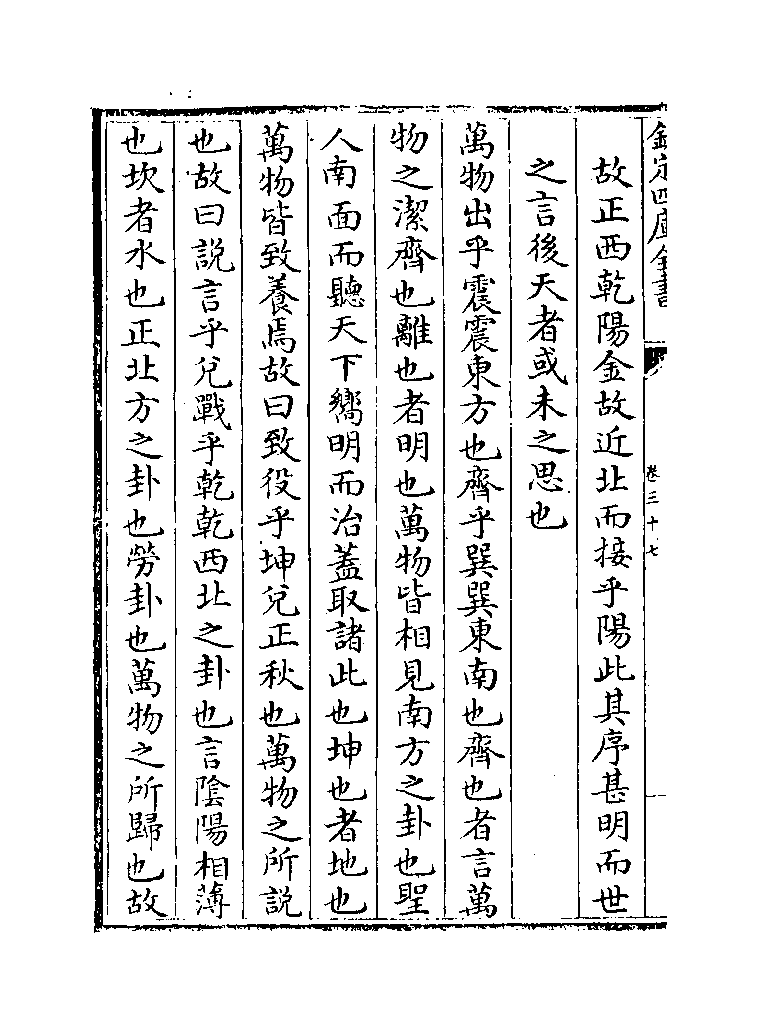 欽定四庫全書
卷三十七
故正西乾陽金故近北而接乎陽此其序甚明而世
之言後天者或未之思也
萬物出乎震震東方也齊乎巽巽東南也齊也者言萬
物之潔齊也離也者明也萬物皆相見南方之卦也聖
人南面而聽天下嚮明而治蓋取諸此也坤也者地也
萬物皆致養焉故曰致役乎坤兌正秋也萬物之所說
也故曰說言乎兌戰乎乾乾西北之卦也言陰陽相薄
也坎者水也正北方之卦也勞卦也萬物之所歸也故